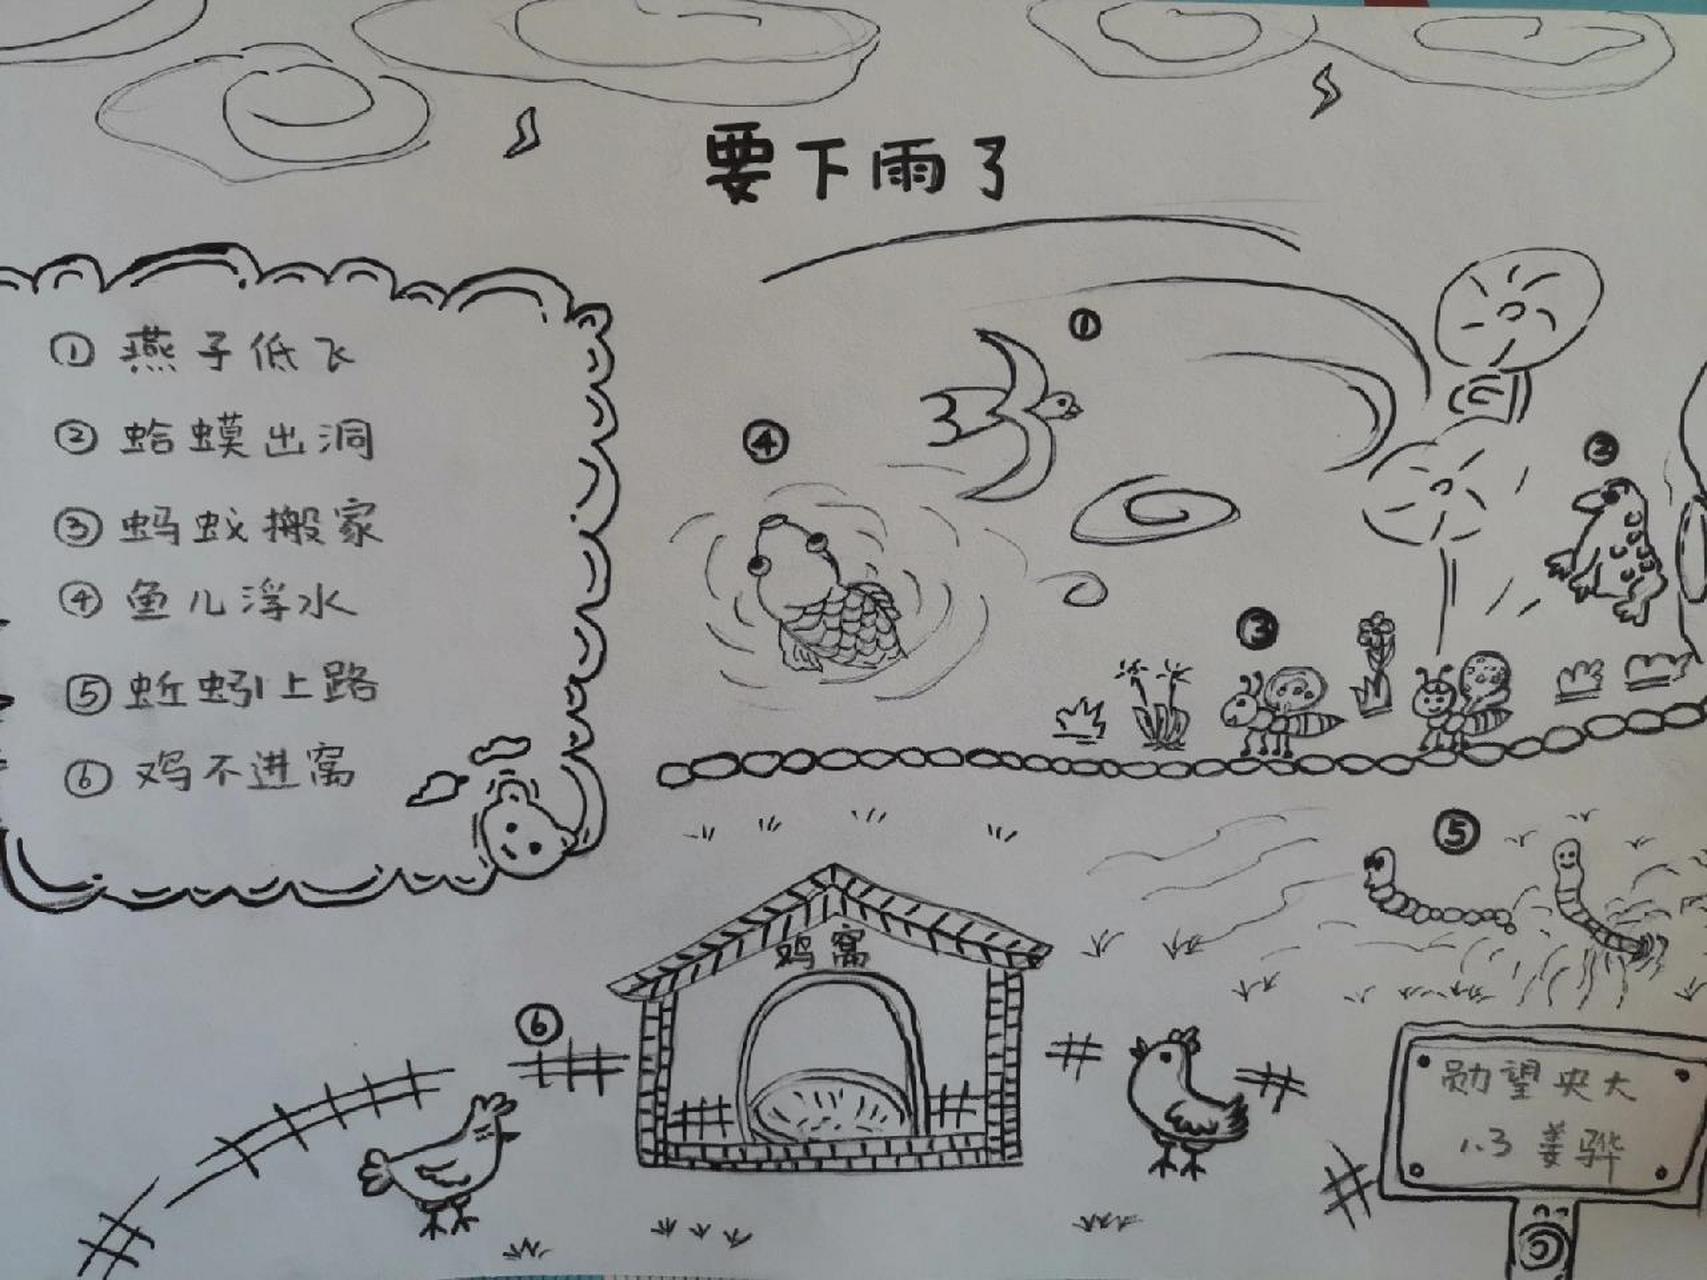 要下雨了
① 燕子低飞
② 蛤蟆出洞
③ 蚂蚁搬家
④ 鱼儿浮水
⑤ 蚯蚓上路
⑥ 鸡不进窝
①
④
②
③
⑤
鸡窝
⑥
勋望央大
1.3 姜骅